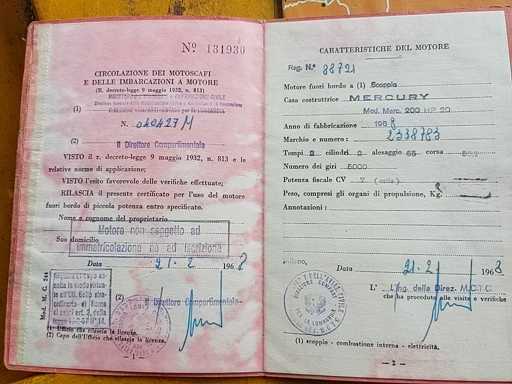 Nº 131930
CIRCOLAZIONE DEI MOTOSCAFI
E DELLE IMBARCAZIONI A MOTORE
(R. decreto-legge 9 maggio 1932, n. 813)
(1)
N. 040427M
Il Direttore Compartimentale
VISTO il r. decreto-legge 9 maggio 1932, n. 813 e le
relative norme di applicazione;
VISTO l'esito favorevole delle verifiche effettuate;
RILASCIA il presente certificato per l'uso del motore
fuori bordo di piccola potenza entro specificato.
Nome e cognome del proprietario
Motore non soggetto ad
immatricolazione nè ad iscrizione
Suo domicilio
Data 21.2 1968
(2) Il Direttore Compartimentale
(1) Ufficio che rilascia la licenza.
(2) Capo dell'Ufficio che rilascia la licenza.
— 1 —
CARATTERISTICHE DEL MOTORE
Reg. N° 88721
Motore fuori bordo a (1) Scoppio
Casa costruttrice MERCURY
Mod. Merc. 200 HP 20
Anno di fabbricazione 1968
Marchio e numero: 2338783
Tempi 2 cilindri 2 alesaggio 65 corsa
Numero dei giri 5000
Potenza fiscale CV 7
Peso, compresi gli organi di propulsione, Kg.
Annotazioni:
Data 21.2 1968
L' Ing. della Direz. M.C.T.C.
che ha proceduto alle visite e verifiche
(1) scoppio - combustione interna - elettricità.
— 3 —